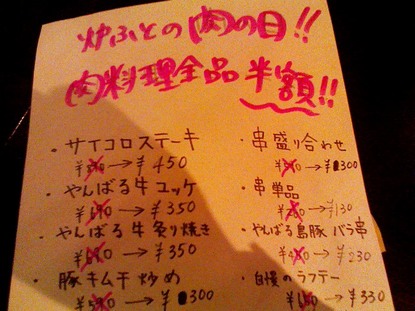 炉ふとの肉の日!!
肉料理全品半額!!
・サイコロステーキ
→¥450
・やんばる牛ユッケ
→¥350
・やんばる牛炙り焼き
→¥350
・豚キムチ炒め
→¥300
・串盛り合わせ
→¥300
・串単品
→¥130
・やんばる島豚バラ串
→¥230
・自慢のラフテー
→¥330